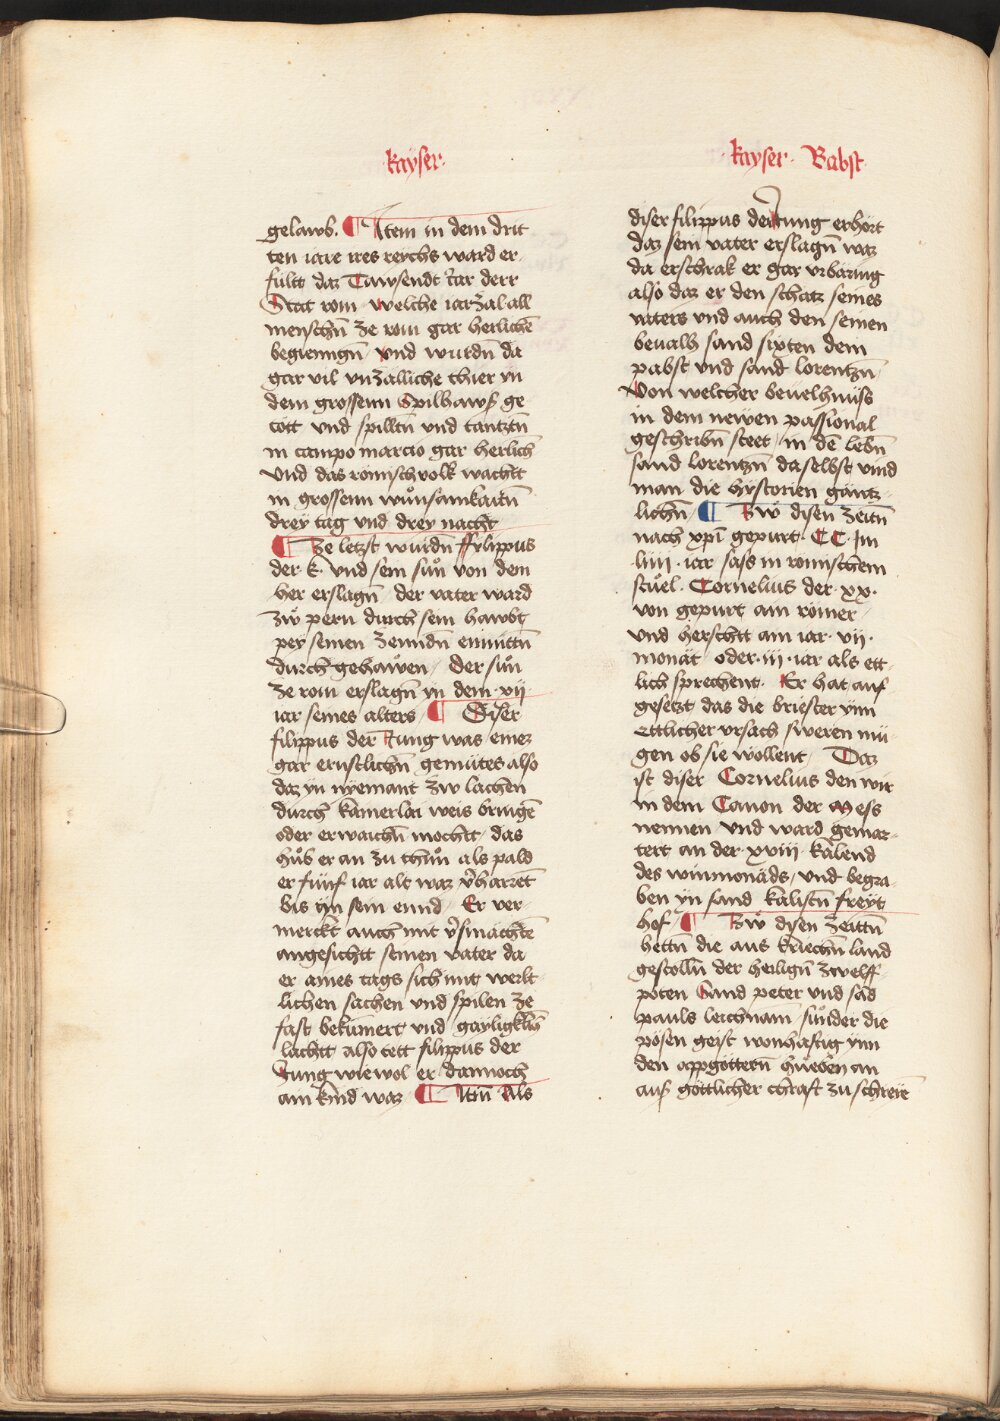 kayser.
gelawb. ¶ Item in dem drit
ten iare ires reychs ward er-
fullt daz Tawsendt iar derr
Stat rom welche iarzal all
menschn̄ ze rom gar herlichē
begienngn̄ vnd wurdn̄ da
gar vil vnzalliche thier yn
dem grossenn Spilhaws ge
tött vnd spilltn̄ vnd tantztn̄
in campo marcio gar herlich
vnd das romisch volk wachtt
in grossenn wůnsamkaitn̄
drey tag vnd drey nacht
¶ Ze letzst wurdn̄ ffylippus
der k. vnd sein sůn von dem
her erslagn̄ der vater ward
zw pern durch sein hawbt
pey seinen zenndn̄ enmittn̄
durch gehawen / der sůn
ze rom erslagn̄ yn dem .xij
iar seines alters ¶ Diser
filippus der kung was einer
gar ernstlichn̄ gemütes also
daz yn nyemant zw lachen
durch kainerlai weis bringē
oder erwaichn̄ mochtt das
hůb er an zu thůn als pald
er fünf iar alt waz v̄harret
bis yn sein ennd Er ver-
merckt auch mit v̄smächte
angesichtt seinen vater da
er aines tags sich mit werlt-
lichen sachen vnd spilen ze
fast bekümert vnd gäyligklich
lachtt also tett filippus der
kung wiewol er dannoch
ain kind waz ¶ Itm̄ Als
kayser . Babst
diser filippus der kung erhört
daz sein vater erslagn̄ waz
da erschrak er gar vrbaring
also daz er den schatz seines
vaters vnd auch den seinen
beualh sand sixten dem
pabst vnd sand lorentzn̄
von welcher beuelhnüss
in dem newen passional
geschribn̄ steet in dē lebn̄
sand lorentzn̄ daselbst vind
man die hystorien gäntz-
lichn̄ ¶ Zw disen zeitn̄
nach xp̄i gepurt. CC. im
.liiii. iar sass in romischem
stůel. Cornelius der .xx.
von gepurt ain römer /
vnd herschtt ain iar. vii.
monät oder .iii. iar als ett-
lich sprechent. Er hat auf
gesetzt das die briester vmb
ettlicher vrsach sweren mü-
gen ob sie wollent / Daz
ist diser Cornelius den wir
in dem Canon der Mess
nennen vnd ward gemar-
tert an der .xviii. kalend
des winmonäds / vnd begra-
ben yn sand kalistn̄ freyt
hof ¶ Zw disen zeittn̄
hettn̄ die aus kriechn̄ land
gestolln̄ der heilign̄ zwelff-
poten Sand peter vnd sād
pauls leichnam sůnder die
pösen geist wonhaftig ynn
den appgöttern hueben an
aus göttlicher chraft zu schreiē